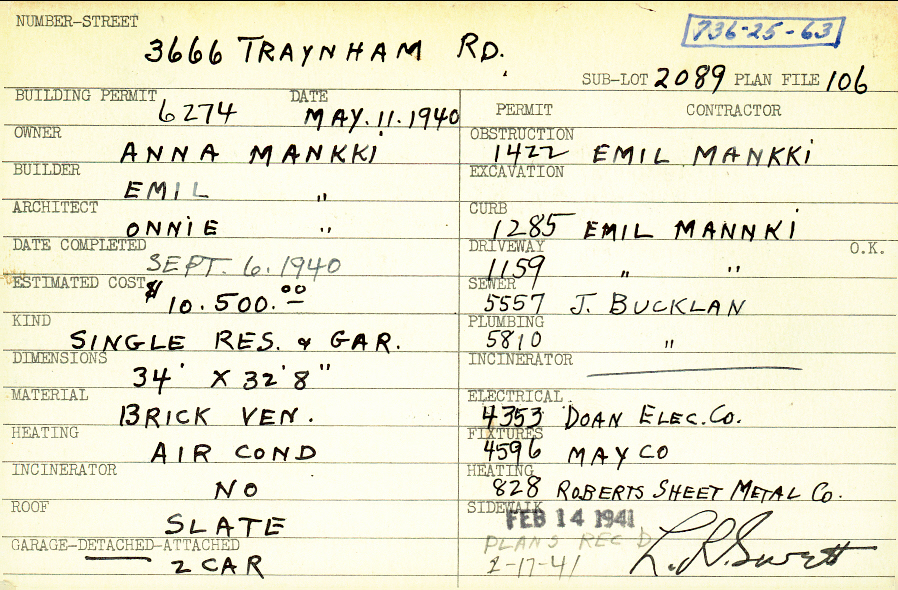 NUMBER-STREET
3666 TRAYNHAM RD.
736-25-63
SUB-LOT 2089 PLAN FILE 106
BUILDING PERMIT 6274 DATE MAY.11.1940
OWNER ANNA MANKKI
BUILDER EMIL "
ARCHITECT ONNIE "
DATE COMPLETED SEPT. 6.1940
ESTIMATED COST $10.500.00
KIND SINGLE RES. & GAR.
DIMENSIONS 34' X 32'8"
MATERIAL BRICK VEN.
HEATING AIR COND
INCINERATOR NO
ROOF SLATE
GARAGE-DETACHED-ATTACHED
2 CAR
PERMIT CONTRACTOR
OBSTRUCTION 1422 EMIL MANKKI
EXCAVATION
CURB 1285 EMIL MANNKI
DRIVEWAY O.K.
1159 " "
SEWER 5557 J. BUCKLAN
PLUMBING 5810 "
INCINERATOR
ELECTRICAL 4353 DOAN ELEC. CO.
FIXTURES 4596 MAY CO
HEATING 828 ROBERTS SHEET METAL CO.
SIDEWALK
FEB 14 1941
PLANS REC D
2-17-41